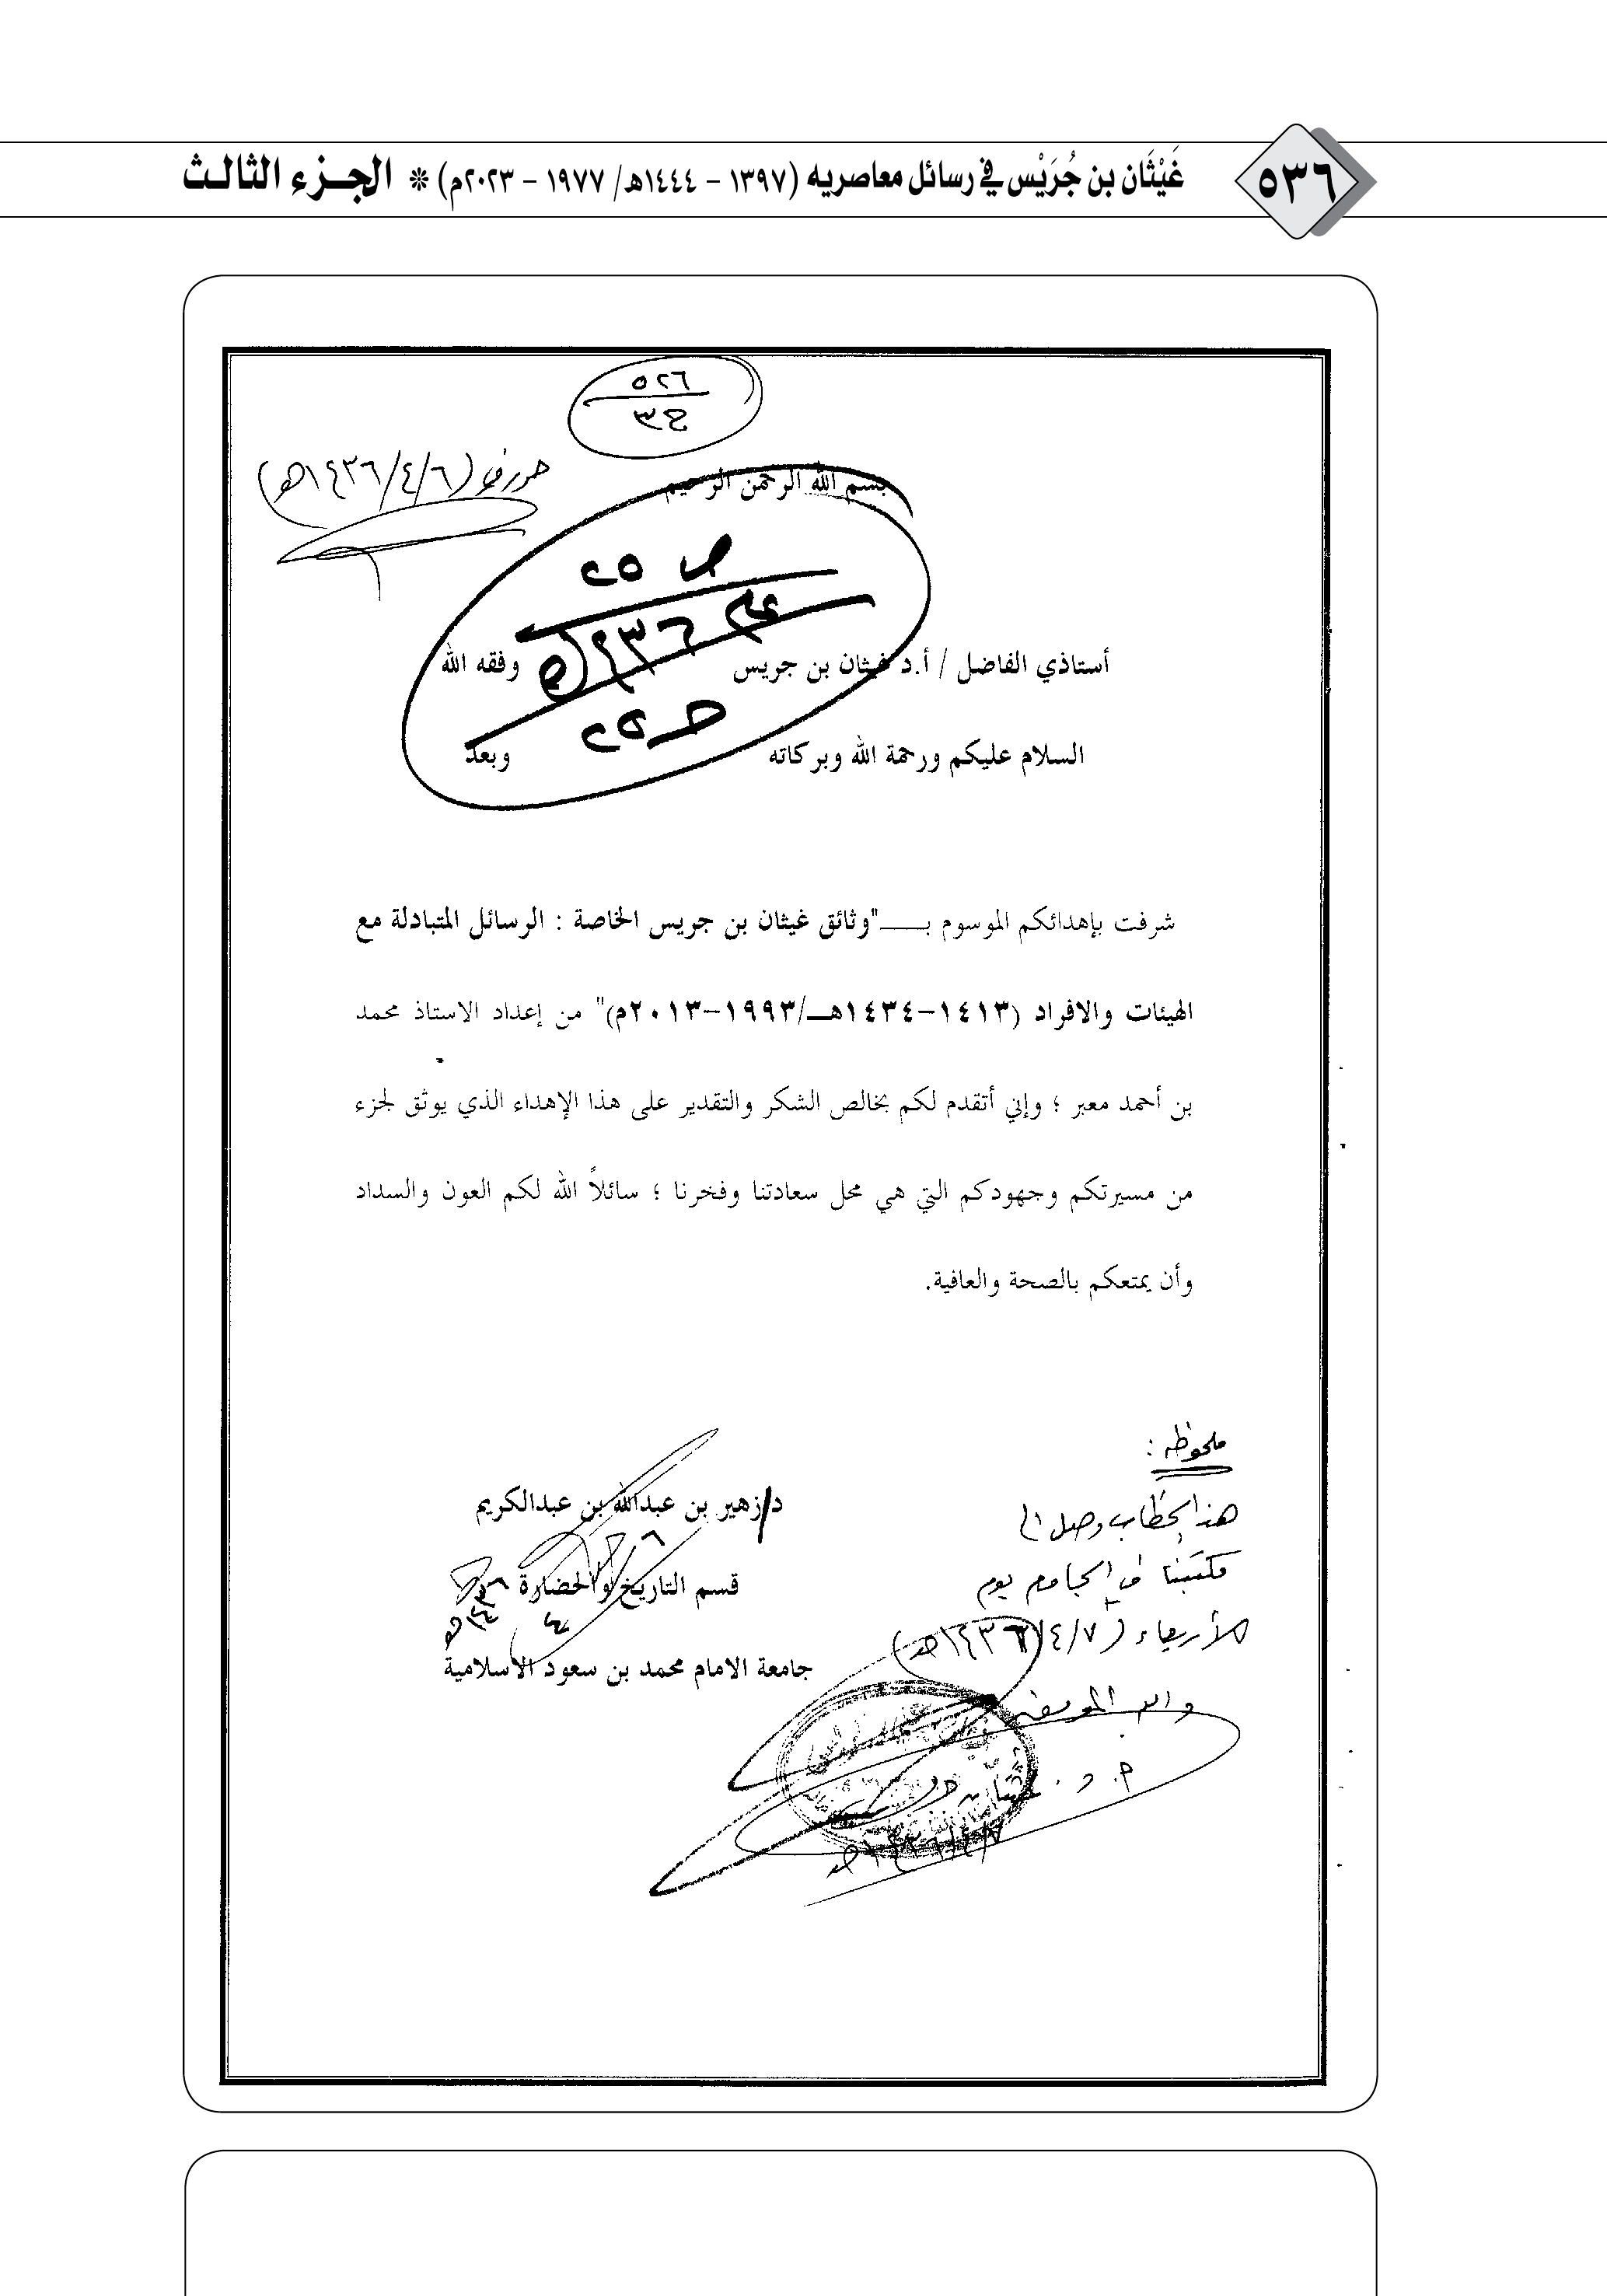 ٥٣٦
غَيْثَان بن جُرَيْس في رسائل معاصريه (١٣٩٧ - ١٤٤٤هـ/ ١٩٧٧ - ٢٠٢٣م) * الجـزء الثالث
٥٢٦
ج٣
(٦/٤/١٤٣٦هـ)
بسم الله الرحمن الرحيم
ص ٢٥
١٤٣٦هـ
أستاذي الفاضل / أ.د غيثان بن جريس وفقه الله
السلام عليكم ورحمة الله وبركاته وبعد
شرفت بإهدائكم الموسوم بـــ"وثائق غيثان بن جريس الخاصة : الرسائل المتبادلة مع
الهيئات والافراد (١٤١٣-١٤٣٤هـ/١٩٩٣-٢٠١٣م)" من إعداد الاستاذ محمد
بن أحمد معبر ؛ وإني أتقدم لكم بخالص الشكر والتقدير على هذا الإهداء الذي يوثق لجزء
من مسيرتكم وجهودكم التي هي محل سعادتنا وفخرنا ؛ سائلاً الله لكم العون والسداد
وأن يمتعكم بالصحة والعافية.
د/زهير بن عبدالله بن عبدالكريم
قسم التاريخ والحضارة
جامعة الامام محمد بن سعود الاسلامية
ملحوظة :
هذا الخطاب وصل إلى
مكتبنا في الجامعة يوم
الأربعاء (٧/٤/١٤٣٦هـ)
والله الموفق
أ. د. غيثان بن جريس
٧/٤/١٤٣٦هـ